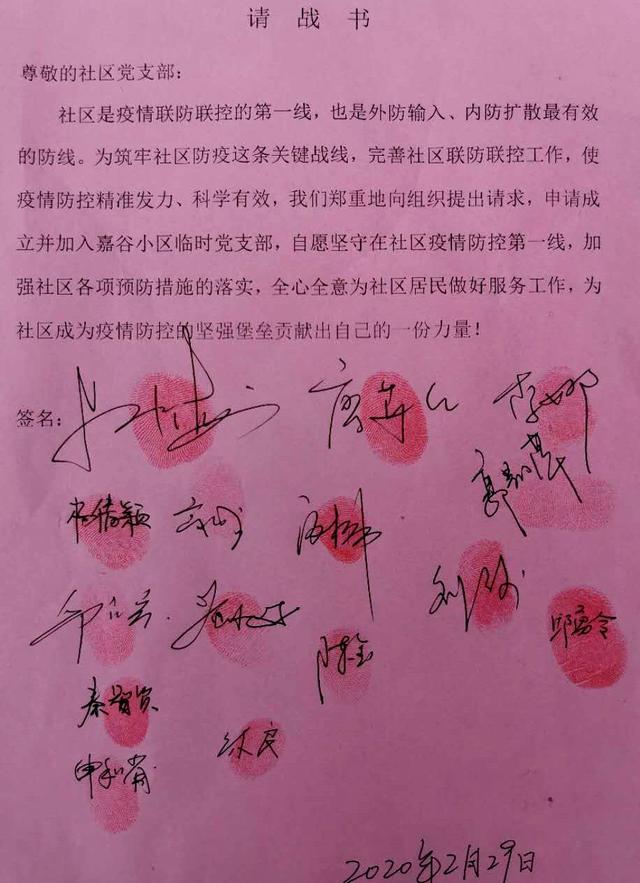 请战书
尊敬的社区党支部：
社区是疫情联防联控的第一线，也是外防输入、内防扩散最有效
的防线。为筑牢社区防疫这条关键战线，完善社区联防联控工作，使
疫情防控精准发力、科学有效，我们郑重地向组织提出请求，申请成
立并加入嘉谷小区临时党支部，自愿坚守在社区疫情防控第一线，加
强社区各项预防措施的落实，全心全意为社区居民做好服务工作，为
社区成为疫情防控的坚强堡垒贡献出自己的一份力量！
签名：
李娜
杨倩颖
陈金
邱富令
2020年2月29日